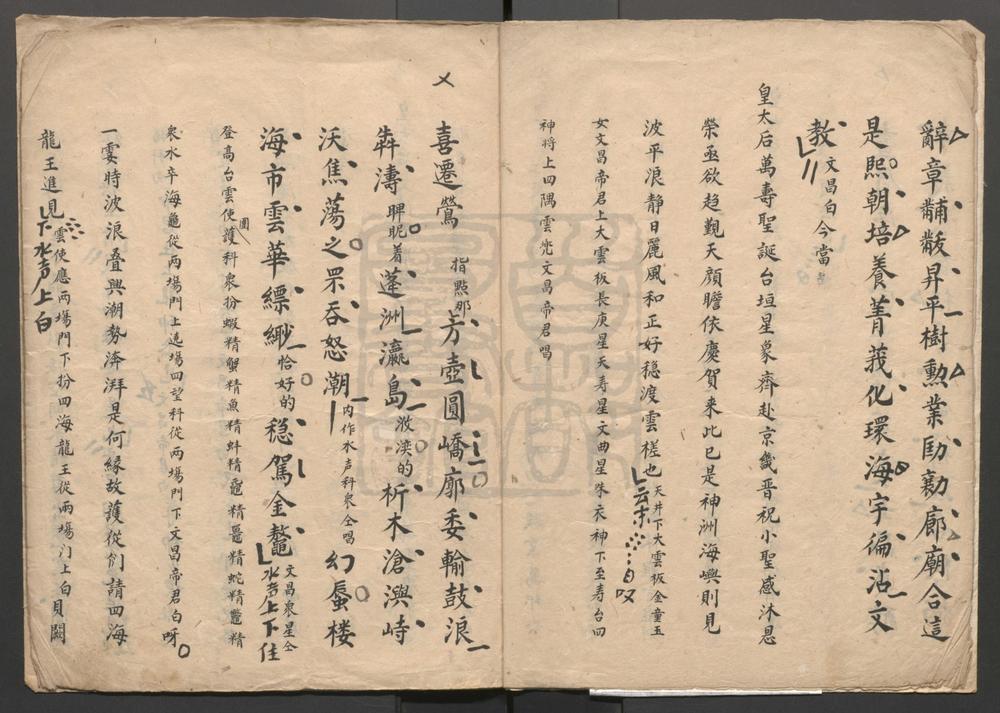 辭章黼黻昇平樹勲業勖勷廊廟合這
是熙朝培養菁莪化環海宇徧沾文
教 文昌白今當
皇太后萬壽聖誕台垣星象齊赴京畿晋祝小聖感沐恩
榮亟欲趋覲天顔瞻依慶賀来此已是神洲海嶼則見
波平浪静日麗風和正好穏渡雲槎也 天井下大雲板金童玉
女文昌帝君上大雲板長庚星天寿星文曲星朱衣神下至寿台四
神将上四隅雲兠文昌帝君唱
喜遷鶯 指點那芳壺圓嶠廓委輸鼓浪
犇濤睤昵着蓬洲瀛島潋滟的析木滄澳峙
沃焦蕩之罘吞怒潮 内作水声科衆仝唱 幻蜃楼
海市雲華縹緲恰好的穏駕金鰲 文昌衆星仝
水声上下住
登高台雲使圍護科衆扮蝦精蟹精魚精蚌精黿精鼉精蛇精鼊精
衆水卒海龜從两塲門上遶塲四望科從两塲門下文昌帝君白呀
一霎時波浪叠興潮勢渀湃是何縁故護從們請四海
龍王進見 雲使應两塲門下扮四海龍王從两塲门上白貝闕
下水声上白